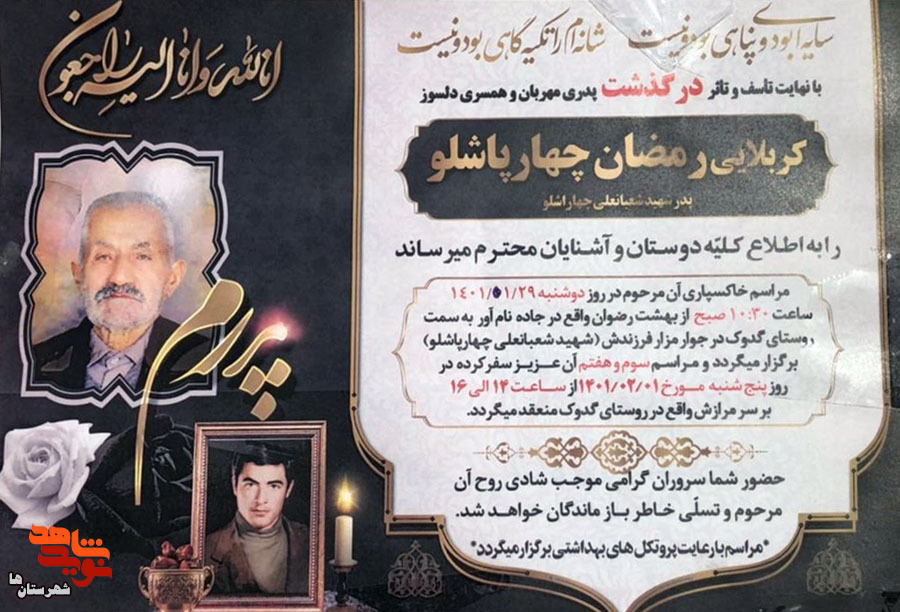 انا لله و انا الیه راجعون
سایه ام بودی و پناهی بود و نیست شانه ام را تکیه گاهی بود و نیست
با نهایت تأسف و تاثر درگذشت پدری مهربان و همسری دلسوز
کربلایی رمضان چهارپاشلو
پدر شهید شعبانعلی چهاراشلو
را به اطلاع کلیّه دوستان و آشنایان محترم میرساند
مراسم خاکسپاری آن مرحوم در روز دوشنبه ۱۴۰۱/۰۱/۲۹
ساعت ۱۰:۳۰ صبح از بهشت رضوان واقع در جاده نام آور به سمت
روستای گدوک در جوار مزار فرزندش (شهید شعبانعلی چهارپاشلو)
برگزار میگردد و مراسم سوم و هفتم آن عزیز سفر کرده در
روز پنج شنبه مورخ ۱۴۰۱/۰۲/۰۱ از ساعت ۱۴ الی ۱۶
بر سر مزارش واقع در روستای گدوک منعقد میگردد.
حضور شما سروران گرامی موجب شادی روح آن
مرحوم و تسلّی خاطر بازماندگان خواهد شد.
*مراسم با رعایت پروتکل های بهداشتی برگزار میگردد*
پدرم
نوید شاهد
شهرستان ها